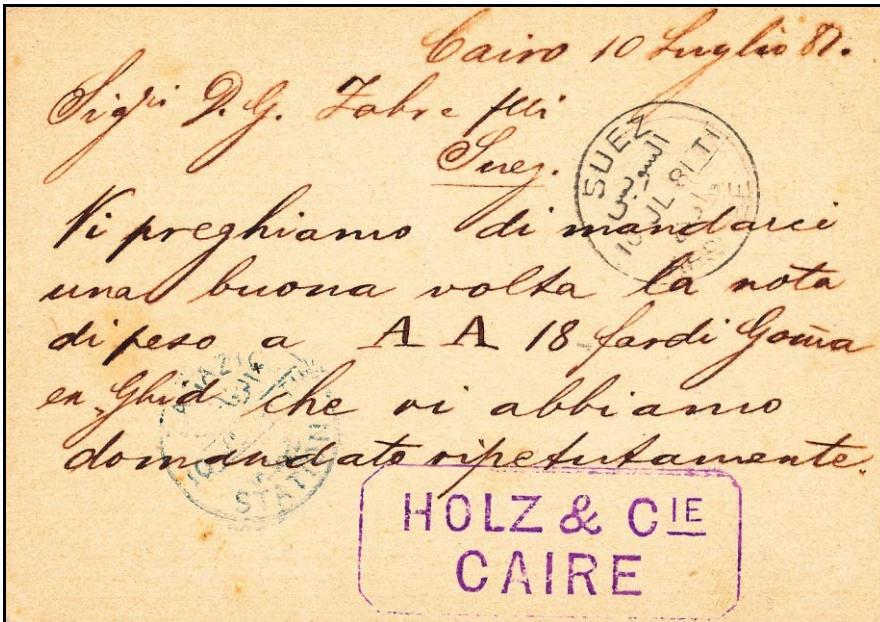 Cairo 10 Luglio 81.
Sigri D. G. Zabre flli
Suez.
Vi preghiamo di mandarci
una buona volta la nota
di peso a A A 18 fardi Goma
ex "Ghid che vi abbiamo
domandato ripetutamente.
SUEZ
السويس
10 JL 81 T I
STATION
HOLZ & CIE
CAIRE